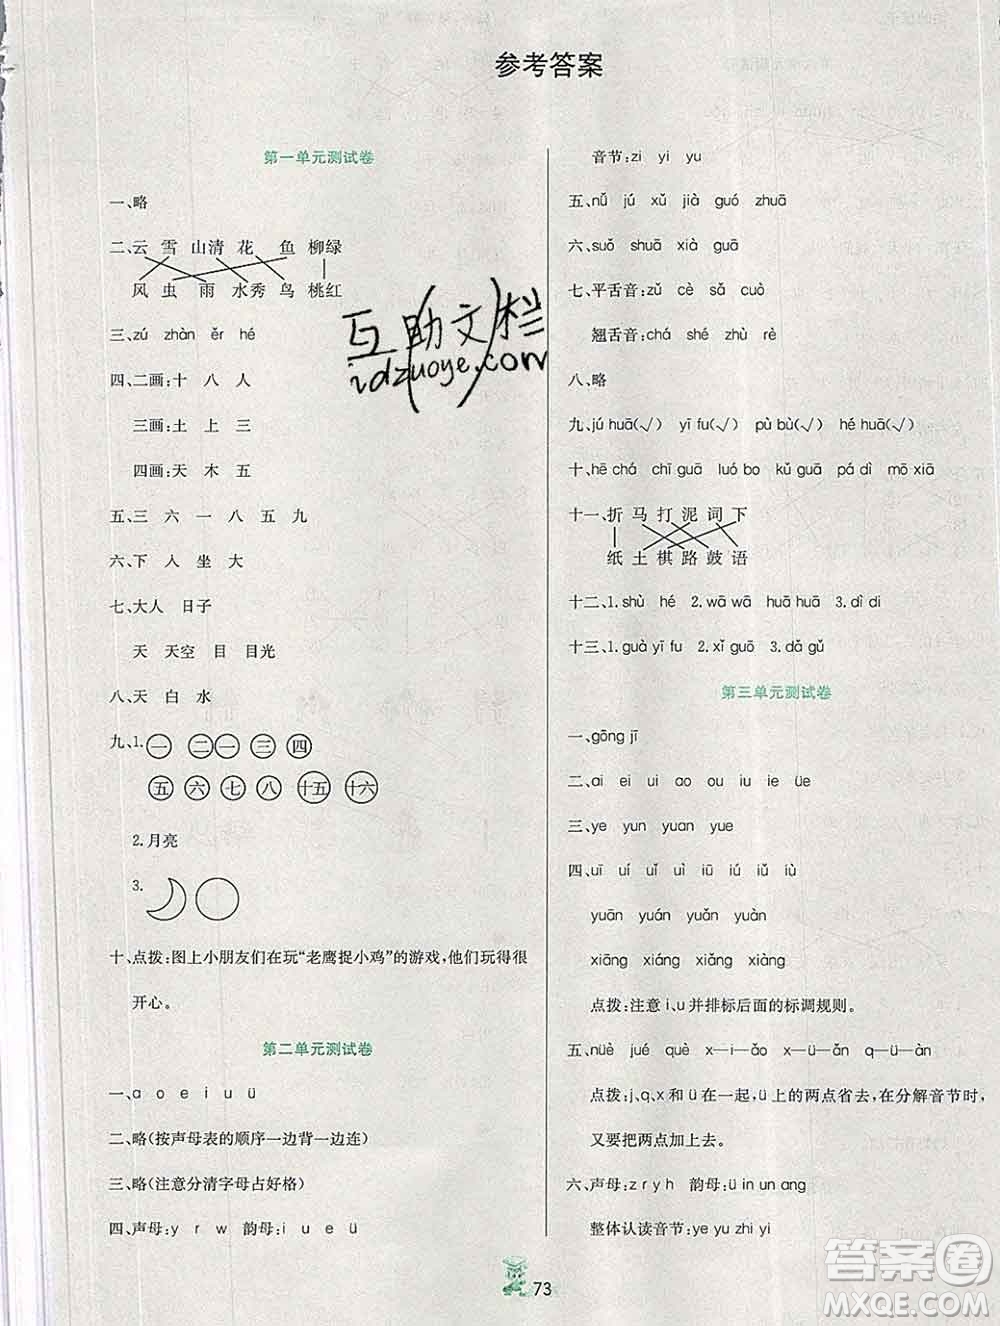 参考答案
第一单元测试卷
一、略
二、云 雪 山清 花 鱼 柳绿
风 虫 雨 水秀 鸟 桃红
三、zú zhàn ěr hé
四、二画:十 八 人
三画:土 上 三
四画:天 木 五
五、三 六 一 八 五 九
六、下 人 坐 大
七、大人 日子
天 天空 目 目光
八、天 白 水
九、1. 一 二一 三 四
五 六 七 八 十五 十六
2.月亮
3.
十、点拨:图上小朋友们在玩“老鹰捉小鸡”的游戏,他们玩得很
开心。
第二单元测试卷
一、a o e i u ü
二、略(按声母表的顺序一边背一边连)
三、略(注意分清字母占好格)
四、声母:y r w 韵母:i u e ü
音节:zi yi yu
五、nǚ jú xǔ jià guó zhuā
六、suǒ shuā xià guā
七、平舌音:zǔ cè sǎ cuò
翘舌音:chá shé zhù rè
八、略
九、jú huā(√) yī fu(√) pù bù(√) hé huā(√)
十、hē chá chī guā luó bo kǔ guā pá dì mō xiā
十一、折 马 打 泥 词 下
纸 土 棋 路 鼓 语
十二、1.shù hé 2.wā wā huā huā 3.dì di
十三、1.guà yī fu 2.xǐ guō 3.dǎ gǔ
第三单元测试卷
一、gōng jī
二、ai ei ui ao ou iu ie üe
三、ye yun yuan yue
四、uī uí uǐ uì iū iú iǔ iù
yuān yuán yuǎn yuàn
xiāng xiáng xiǎng xiàng
点拨:注意i、u并排标后面的标调规则。
五、nüè jué què x—i—ǎo x—ü—ǎn
点拨:j、q、x和ü在一起,ü上的两点省去,在分解音节时,
又要把两点加上去。
六、声母:z r y h 韵母:ü in un ang
整体认读音节:ye yu zhi yi
73
互助文栏
idzuoye.com
答案圈
MXQE.COM